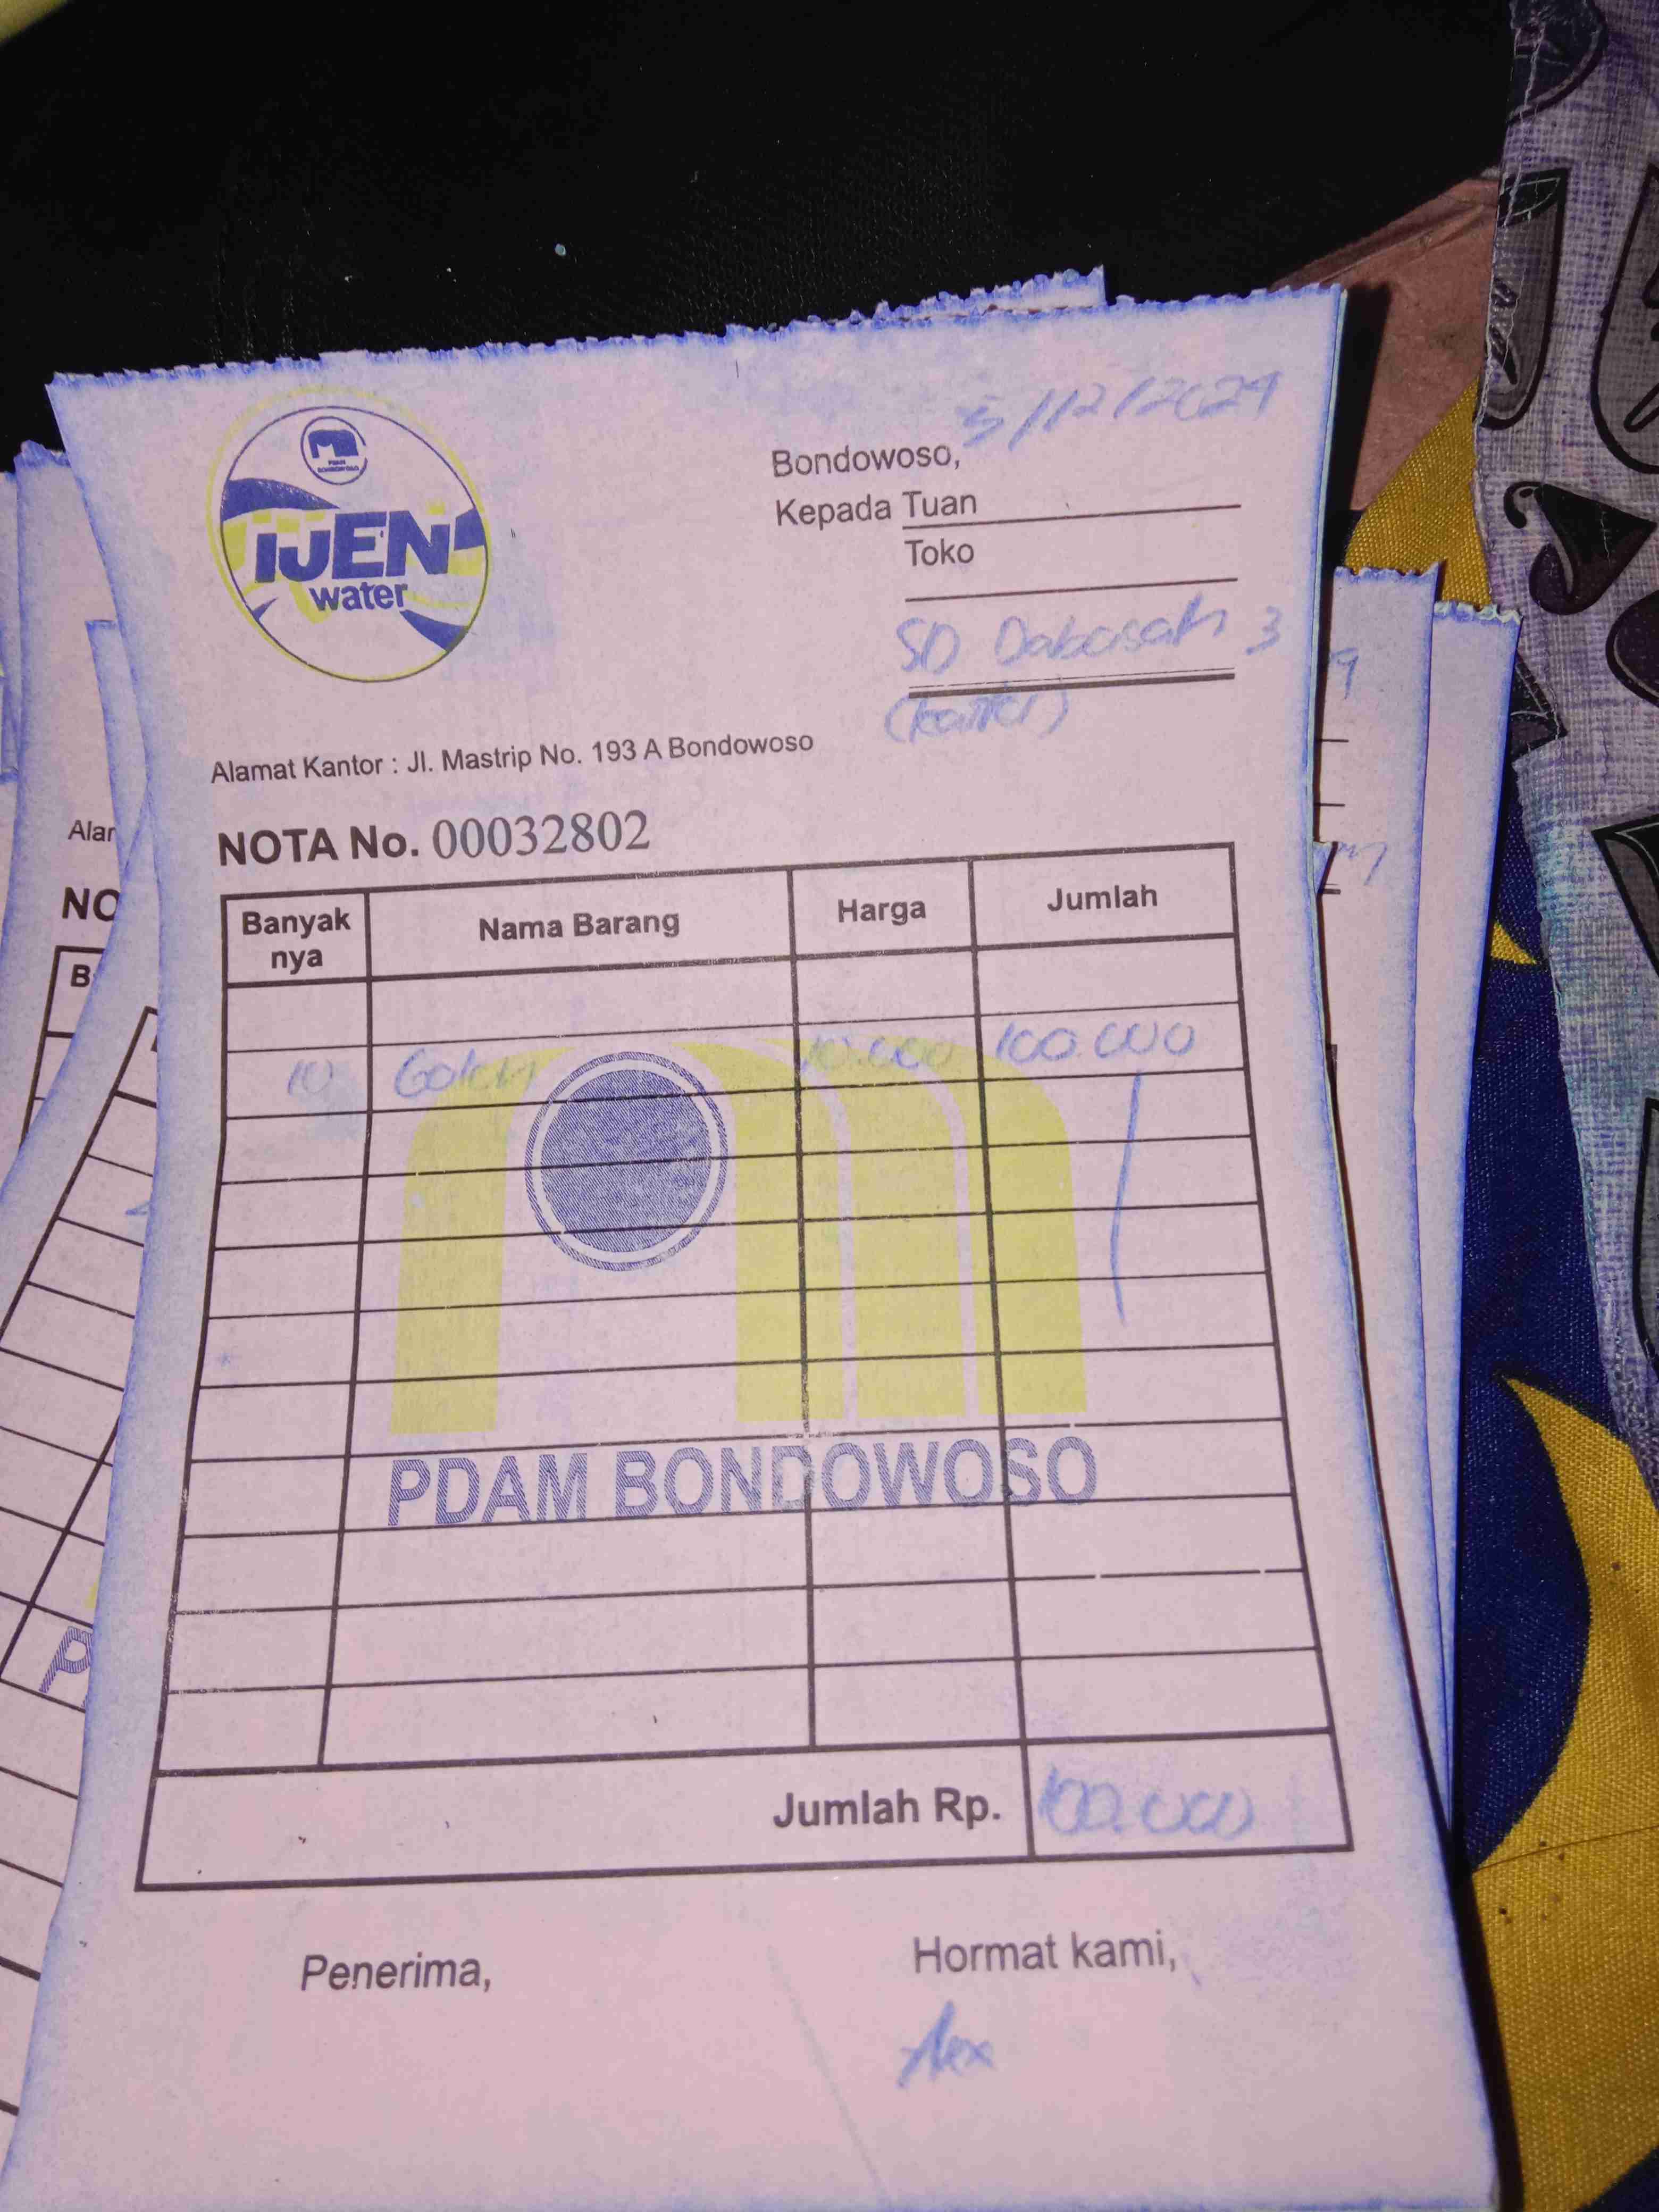 PDAM
BONDOWOSO
IJEN
water
Bondowoso, 3/12/2024
Kepada Tuan
Toko
SD Dabasah 3
(kantor)
Alamat Kantor : Jl. Mastrip No. 193 A Bondowoso
NOTA No. 00032802
Banyak nya Nama Barang Harga Jumlah
10 Galon 10.000 100.000
PDAM BONDOWOSO
Jumlah Rp. 100.000
Penerima, Hormat kami,
Alex
Alar
NO
B
P
9